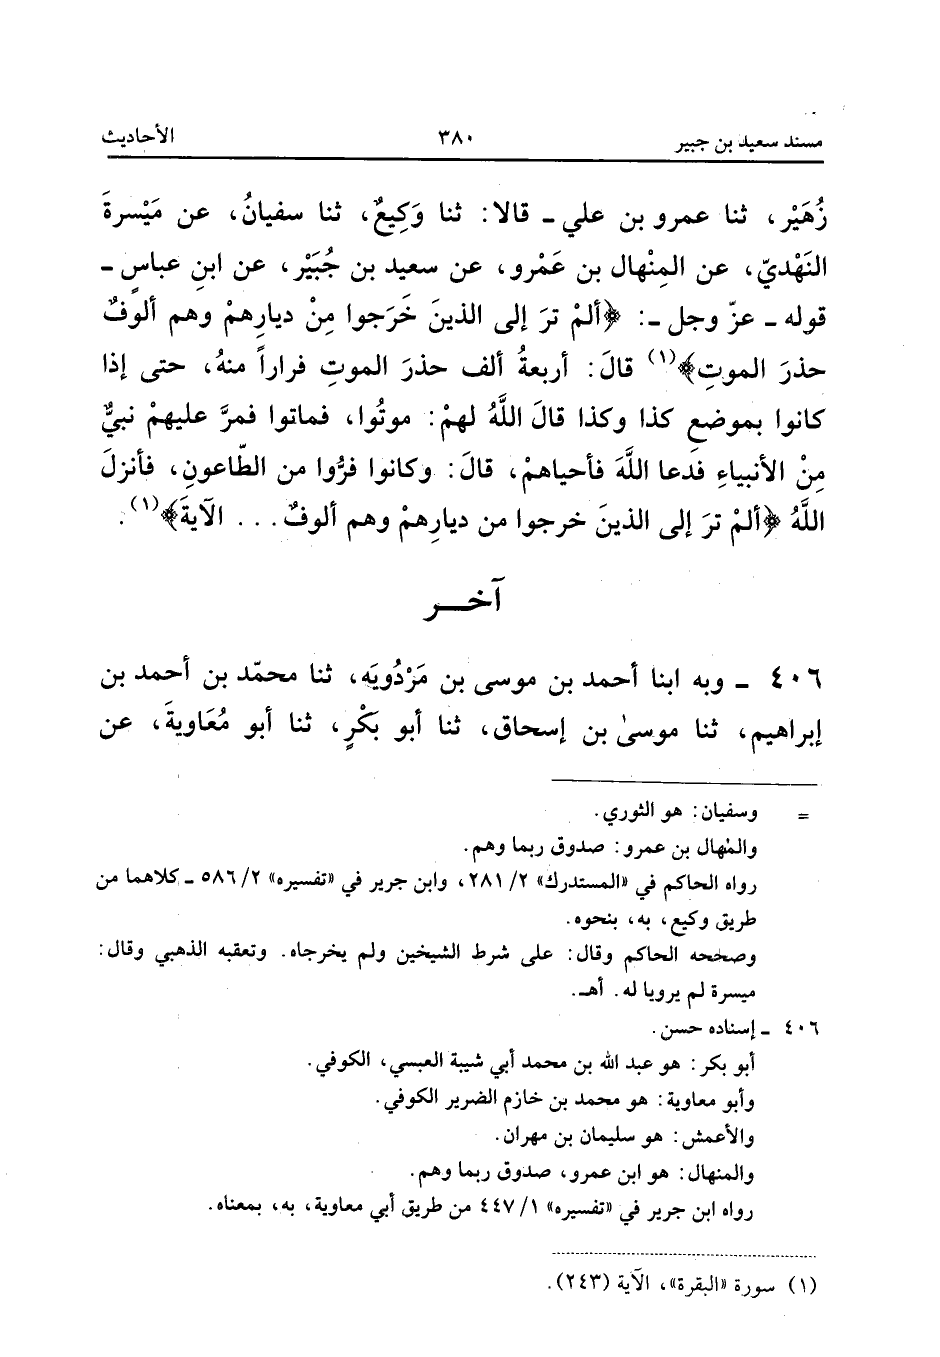 مسند سعيد بن جبير ٣٨٠ الأحاديث
زُهَيْر، ثنا عمرو بن علي ـ قالا: ثنا وَكِيعٌ، ثنا سفيانُ، عن مَيْسرةَ
النَهْديّ، عن المِنْهال بن عَمْرو، عن سعيد بن جُبَيْر، عن ابنِ عباسٍ ـ
قوله ـ عزّ وجل ـ: ﴿ألمْ ترَ إلى الذينَ خَرَجوا مِنْ ديارِهمْ وهم ألوفٌ
حذرَ الموتِ﴾(١) قالَ: أربعةُ ألف حذرَ الموتِ فراراً منهُ، حتى إذا
كانوا بموضعِ كذا وكذا قالَ اللَّهُ لهمْ: موتُوا، فماتوا فمرَّ عليهمْ نبيٌّ
مِنْ الأنبياءِ فدعا اللَّهَ فأحياهمْ، قالَ: وكانوا فرُّوا من الطّاعونِ، فأنزلَ
اللَّهُ ﴿ألمْ ترَ إلى الذينَ خرجوا من ديارِهمْ وهم ألوفٌ... الآيةَ﴾(١).
آخـــر
٤٠٦ ـ وبه ابنا أحمد بن موسى بن مَرْدُويَه، ثنا محمّد بن أحمد بن
إبراهيم، ثنا موسىٰ بن إسحاق، ثنا أبو بَكْرٍ، ثنا أبو مُعَاويةَ، عن
= وسفيان: هو الثوري.
والمنهال بن عمرو: صدوق ربما وهم.
رواه الحاكم في «المستدرك» ٢/ ٢٨١، وابن جرير في «تفسيره» ٢/ ٥٨٦ ـ كلاهما من
طريق وكيع، به، بنحوه.
وصححه الحاكم وقال: على شرط الشيخين ولم يخرجاه. وتعقبه الذهبي وقال:
ميسرة لم يرويا له. أهـ.
٤٠٦ ـ إسناده حسن.
أبو بكر: هو عبد الله بن محمد أبي شيبة العبسي، الكوفي.
وأبو معاوية: هو محمد بن خازم الضرير الكوفي.
والأعمش: هو سليمان بن مهران.
والمنهال: هو ابن عمرو، صدوق ربما وهم.
رواه ابن جرير في «تفسيره» ١/ ٤٤٧ من طريق أبي معاوية، به، بمعناه.
(١) سورة «البقرة»، الآية (٢٤٣).